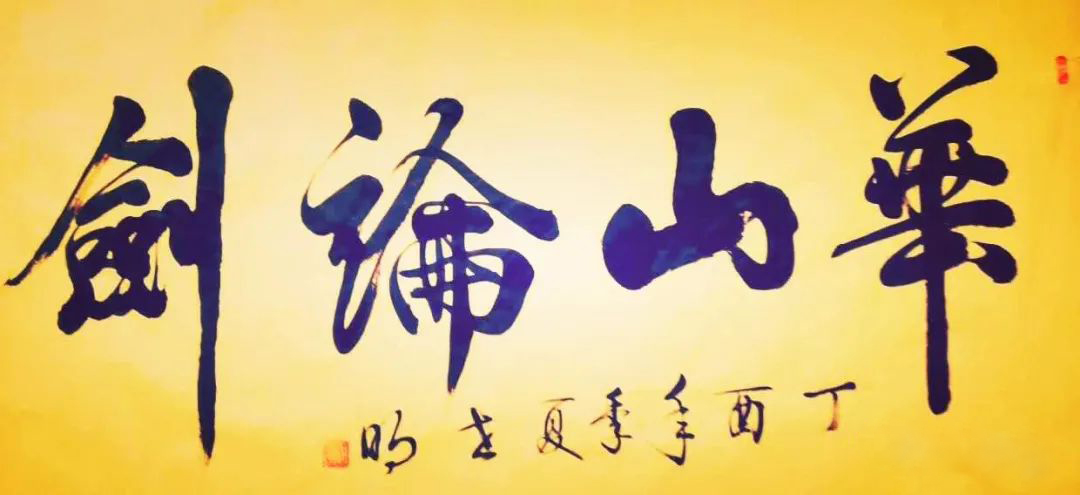 華山論劍
丁酉年季夏志明